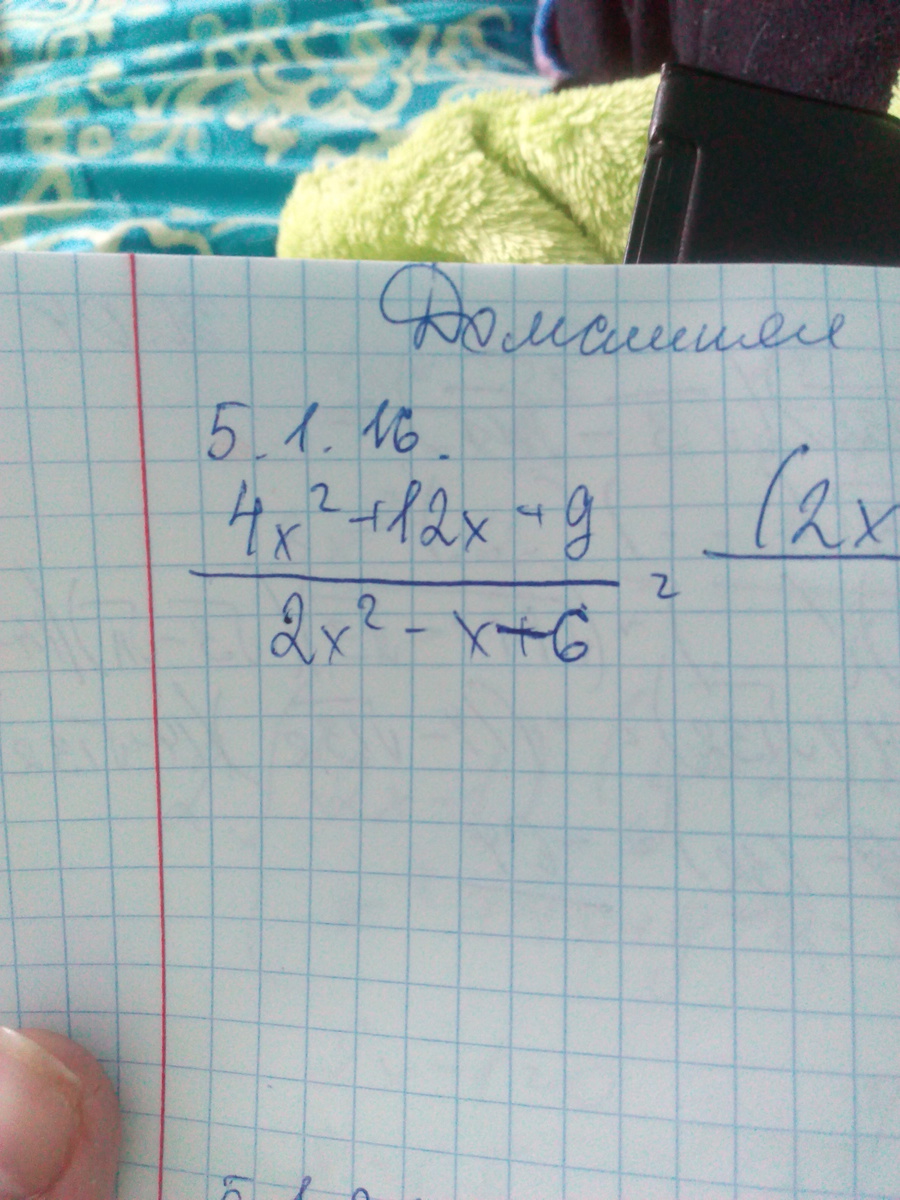 Домашняя
5.1.16.
4x² + 12x + 9
(2x
=
2x² - x + 6